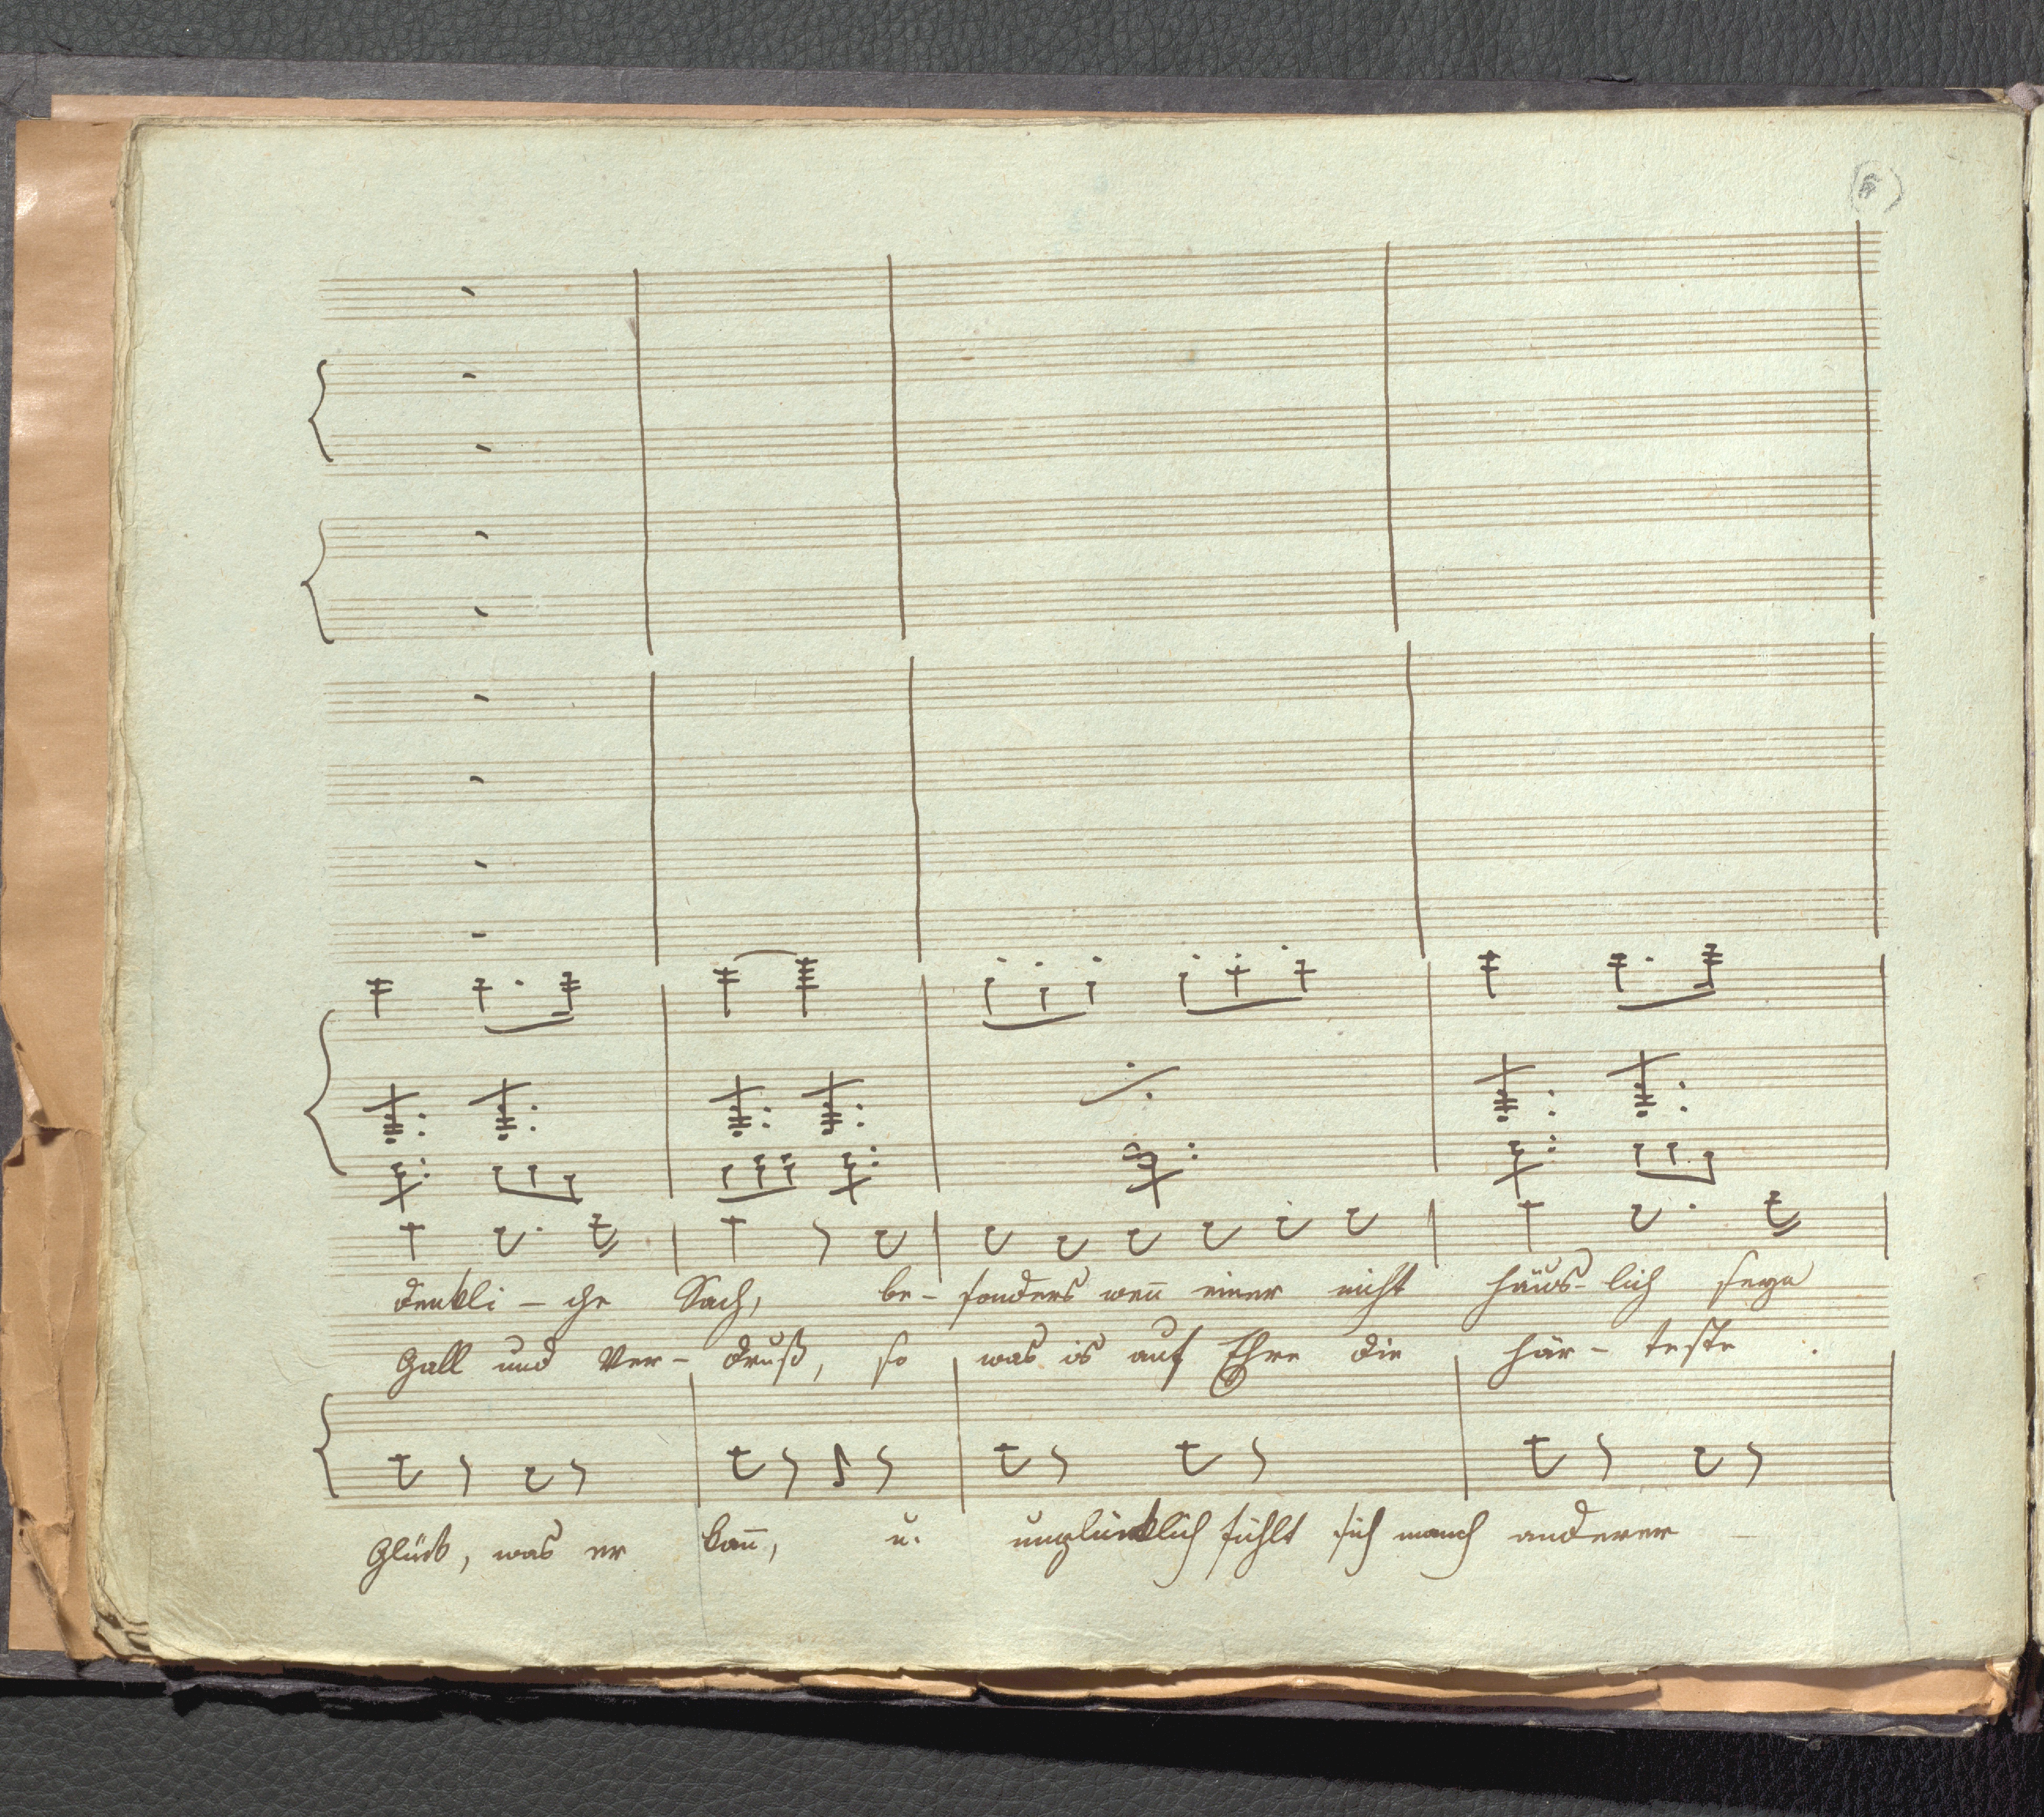 denkli - che Sach, be - sonders weñ einer nicht häus - lich seyn
Gall und Ver - druß, so was is auf Ehre die här - teste
Glück, was er kañ, u. unglücklich fühlt sich manch anderer